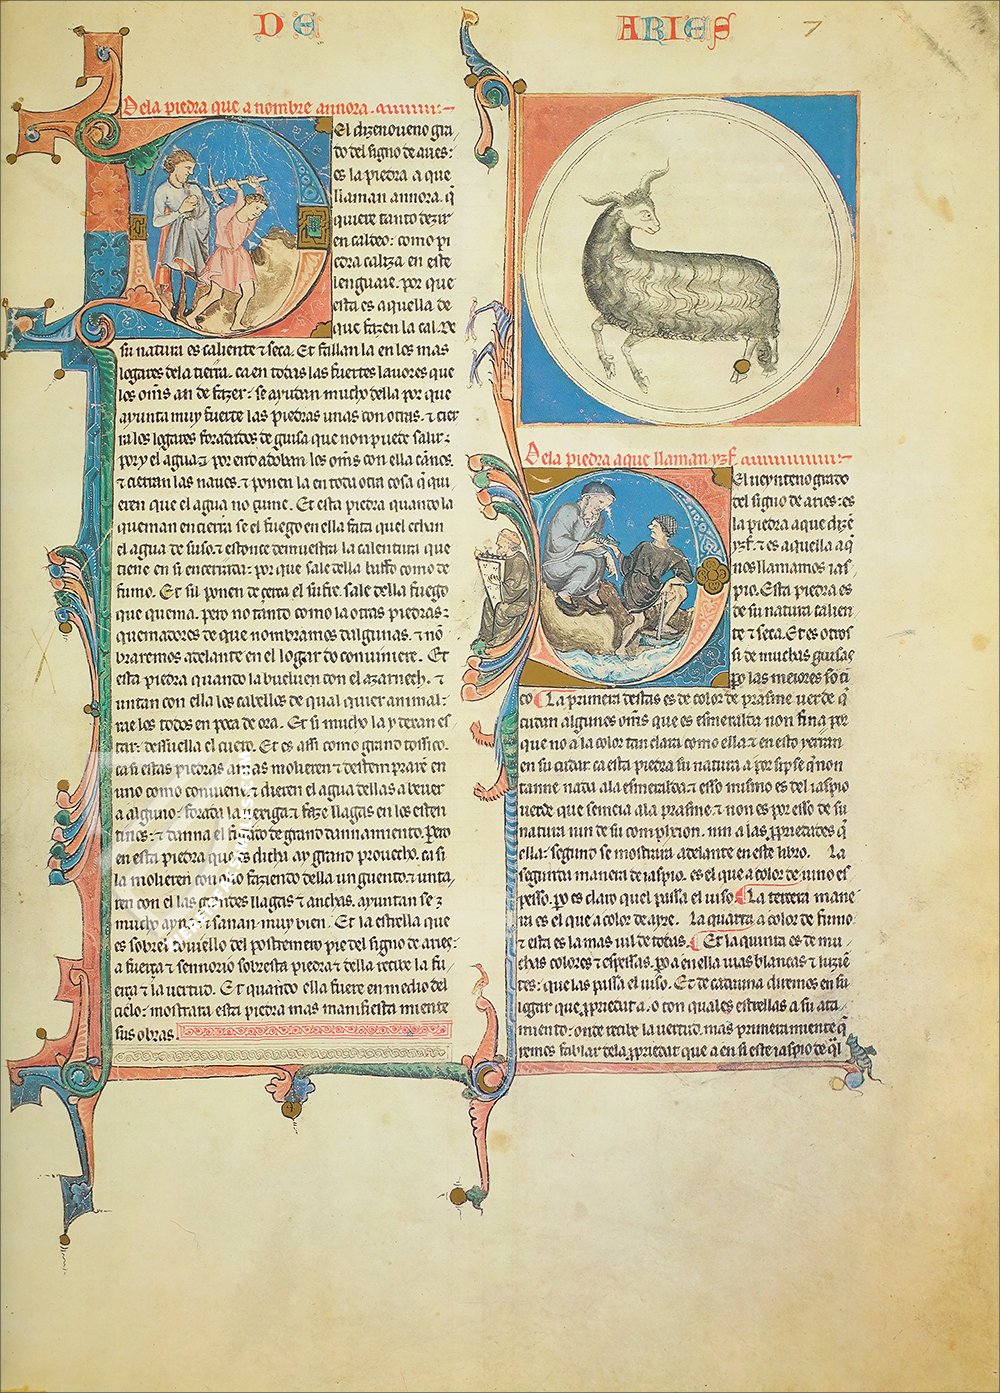 DE ARIES 7
Dela piedra que a nombre annora.
El dizenoueno gra
do del signo de aries:
es la piedra a que
llaman annora. q̄
quiere tanto dezir
en caldeo: como pi
edra caliza en este
lenguaie. por que
esta es aquella de
que fazen la cal. De
su natura es caliente ⁊ seca. Et fallan la en los mas
logares dela tierra. ca en todas las fuertes lauores que
los om̄s an de fazer: se ayudan mucho della por que
ayunta muy fuerte las piedras unas con otras. ⁊ cier
ra los logares foradados de guisa que non puede salir
por y el agua. ⁊ por end adoban los om̄s con ella cannos.
⁊ cierran las naues. ⁊ ponen la en toda otra cosa q̄ qui
eren que el agua no tume. Et esta piedra quando la
queman encierra se el fuego en ella fata quel echan
el agua de suso. ⁊ estonce demuestra la calentura que
tiene en si encerrada: por que sale della buffo como de
fumo. Et sil ponen de cerca el sufre. sale della fuego
que quema. pero no tanto como las otras piedras:
quemadores de que nombramos dalgunas. ⁊ nō
braremos adelante en el logar do conuiniere. Et
esta piedra quando la bueluen con el azarnech. ⁊
untan con ella los cabellos de qual quier animal:
rae los todos en poca de ora. Et si mucho la y dexan es
tar: dessuella el cuero. Et es assi como grand tossico.
ca si estas piedras amas molieren ⁊ destemprarē en
uno como conuiene. ⁊ dieren el agua dellas a beuer
a alguno: forada la uexiga ⁊ faze llagas en los esten
tinos: ⁊ danna el figado de grand dannamiento. Pero
en esta piedra que es dicha ay grand prouecho. ca si
la molieren con olio faziendo della un guento. ⁊ unta
ren con el las grandes llagas ⁊ anchas. ayuntan se
mucho ayna. ⁊ sanan muy bien. Et la estrella que
es sobrel touiello del postremero pie del signo de aries:
a fuerça ⁊ sennorio sobresta piedra. ⁊ della recibe la fu
erça ⁊ la uertud. Et quando ella fuere en medio del
cielo: mostrara esta piedra mas manifiesta miente
sus obras.
Dela piedra aque llaman yzf.
El ueynteno grado
del signo de aries: es
la piedra aque dizē
yzf. ⁊ es aquella a q̄
nos llamamos ias
pio. Esta piedra es
de su natura calien
te ⁊ seca. Et es otros
si de muchas guisas
po las meiores so ci
co La primera destas es de color de prasme uerde. q̄
cuidan algunos om̄s que es esmeralda non fina por
que no a la color tan clara como ella. ⁊ en esto yerran
en su cuidar. ca esta piedra su natura a por si se q̄ non
tanne nada ala esmeralda. ⁊ esso mismo es del iaspio
uerde que semeia ala prasme. ⁊ non es por esso de su
natura nin de su complexion. nin a las propriedades q̄
ella: segund se mostrara adelante en este libro. La
segunda manera de iaspio. es el que a color de uino es
pesso. po es claro quel passa el uiso. La tercera mane
ra es el que a color de ayre. La quarta a color de fumo
⁊ esta es la mas uil de todas. Et la quinta es de mu
chas colores ⁊ espessas. po a en ella uias blancas ⁊ luzien
tes: que las passa el uiso. Et de cadauna diremos en su
logar que propriedat a. o con quales estrellas a su ata
miento: onde recibe la uertud. mas primera miente q̄
remos fablar dela propriedat que a en si este iaspio de q̄l